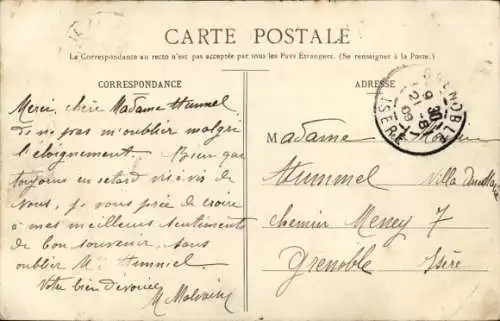 CARTE POSTALE
La Correspondance au recto n'est pas acceptée par tous les Pays Étrangers. (Se renseigner à la Poste.)
CORRESPONDANCE
Merci, chère Madame Hummel,
de ne pas m'oublier malgré
l'éloignement. Bien que
toujours en retard vis à vis de
vous, je vous prie de croire
à mes meilleurs sentiments
de bon souvenir, sans
oublier Mr Hummel
Votre bien dévouée
M
ADRESSE
GRENOBLE
ISÈRE
Madame
Hummel Villa
chemin Meney 7
Grenoble Isère